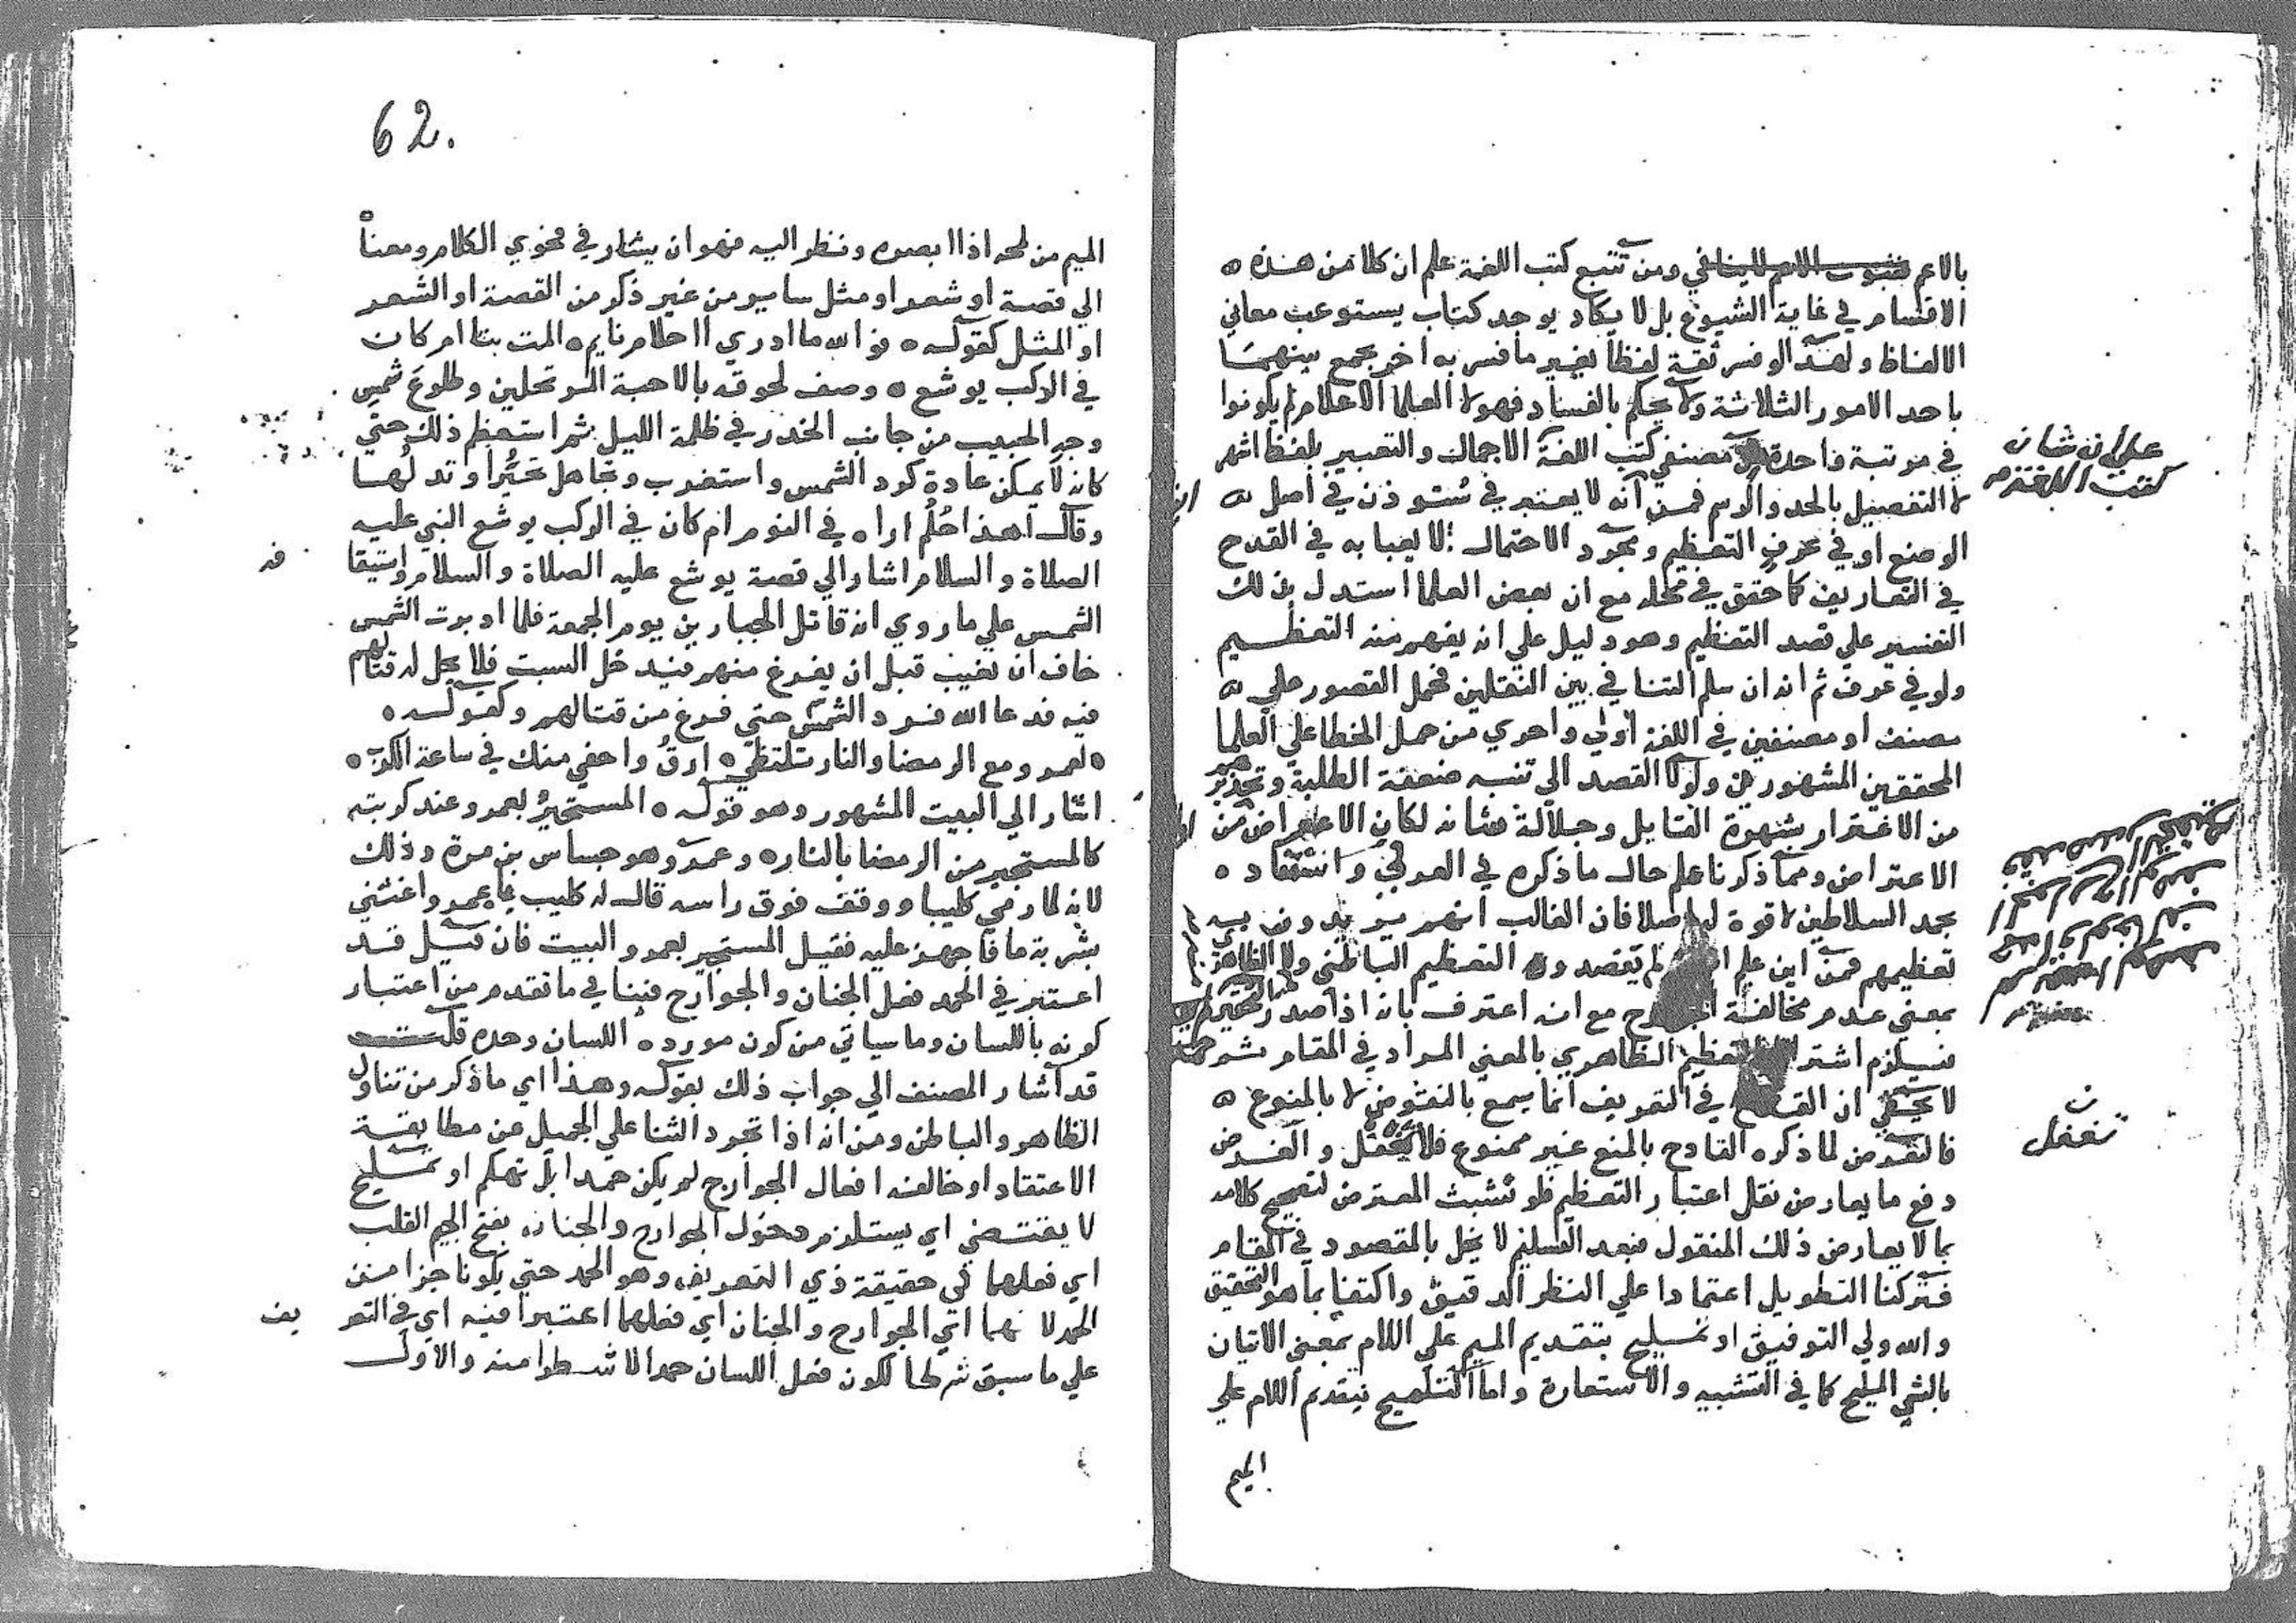 بالاعم ومن تتبع كتب اللغة علم ان كلا من هذه
الاقسام في غاية الشيوع بل لا يكاد يوجد كتاب يستوعب معاني
الالفاظ ولهذا لو فسر ثقة لفظا بغير ما فسر به اخر يجمع بينهما
باحد الامور الثلاثة ولا يحكم بالفساد فهولا العلما الاعلام لم يكونوا
في مرتبة واحدة مصنفي كتب اللغة الاجمال والتعبير بلفظ اشهر
علي ان شان
كتب اللغة
لا التفصيل بالحد والرسم فمن انه لا يعتبر في في اصل
الوضع او في عرف التعظيم ومجرد الاحتمال لا يعبا به في القدح
في التعاريف كما حقق في محله مع ان بعض العلما استدل بذلك
التفسير علي قصد التعظيم وهو دليل علي انه يفهم منه التعظيم
ولو في عرف ثم انه ان سلم التنافي بين النقلين فحمل القصور علي
مصنف او مصنفين في اللغة اولي واحري من حمل الخطا علي العلما
المحققين المشهورين ولولا القصد الي تنبيه ضعفة الطلبة وتحذيرهم
من الاغترار بشهرة القايل وجلالة شانه لكان الاعراض من
الاعتراض ومما ذكرنا علم حال ما ذكره في العرفي وانتقاد
بجد السلاطين لا قوة له اصلا فان الغالب انهم يريدون به
تعظيمهم فمن اين علم لم يقصد التعظيم الباطني ولا الظاهري
بمعني عدم مخالفة مع انه اعترف بانه اذا صدر
فيلزم التعظيم الظاهري بالمعني المراد في المقام
لا يخفي ان في التعريف انما يسمع بالنقوض لا بالمنوع
فالتعرض لما ذكره القادح بالمنع غير ممنوع فلا والغرض
تغفل
دفع ما يعارض نقل اعتبار التعظيم فلو تشبث المعترض لتصحيح كلامه
بما لا يعارض ذلك المنقول فبعد التسليم لا يخل بالمقصود في المقام
فتركنا التطويل اعتمادا علي النظر الدقيق واكتفا بما هو التحقيق
والله ولي التوفيق او تمليح بتقديم الميم علي اللام بمعني الاتيان
بالشي المليح كما في التشبيه والاستعارة واما التلميح بتقديم اللام علي
الميم
62.
الميم من لمحه اذا ابصره ونظر اليه فهو ان يشار في فحوي الكلام ومعناه
الي قصة او شعر او مثل ساير من غير ذكر من القصة او الشعر
او المثل كقوله فوالله ما ادري ااحلام نايم المت بنا ام كان
في الركب يوشع وصف لحوقه بالاحبة المرتحلين وطلوع شمس
وجه الحبيب من جانب الخدر في ظلمة الليل ثم استعظم ذلك حتي
كانه لا يمكن عادة كرد الشمس واستغرب وتجاهل تحيرا وتدلها
وقال اهذا حلم اراه في النوم ام كان في الركب يوشع النبي عليه
الصلاة والسلام اشار الي قصة يوشع عليه الصلاة والسلام واستيقا
فه
الشمس علي ما روي انه قاتل الجبارين يوم الجمعة فلما ادبرت الشمس
خاف ان تغيب قبل ان يفرغ منهم فيدخل السبت فلا يحل له قتالهم
فيه فدعا الله فرد الشمس حتي فرغ من قتالهم وكقوله
لعمرو مع الرمضا والنار تلتظي ارق واحفي منك في ساعة الكرب
اشار الي البيت المشهور وهو قوله المستجير بعمرو عند كربته
كالمستجير من الرمضا بالنار وعمرو هو جساس بن مرة وذلك
لانه لما رمي كليبا ووقف فوق راسه قال له كليب يا عمرو اغثني
بشربة ما فاجهز عليه فقيل المستجير بعمرو البيت فان قيل قد
اعتبر في الحمد فعل الجنان والجوارح فينافي ما تقدم من اعتبار
كونه باللسان وما سياتي من كون مورده اللسان وحده قلت
قد اشار المصنف الي جواب ذلك بقوله وهذا اي ما ذكر من تناول
الظاهر والباطن ومن انه اذا تجرد الثنا علي الجميل عن مطابقة
الاعتقاد او خالفه افعال الجوارح لم يكن حمدا بل تهكم او تمليح
لا يقتضي اي يستلزم دخول الجوارح والجنان بفتح الجيم القلب
اي فعلهما في حقيقة ذي التعريف وهو الحمد حتي يكونا جزا من
الحمد لانهما اي الجوارح والجنان اي فعلهما اعتبرا فيه اي في التعر
يف
علي ما سبق شرطا لكون فعل اللسان حمدا لا شطرا منه والاول